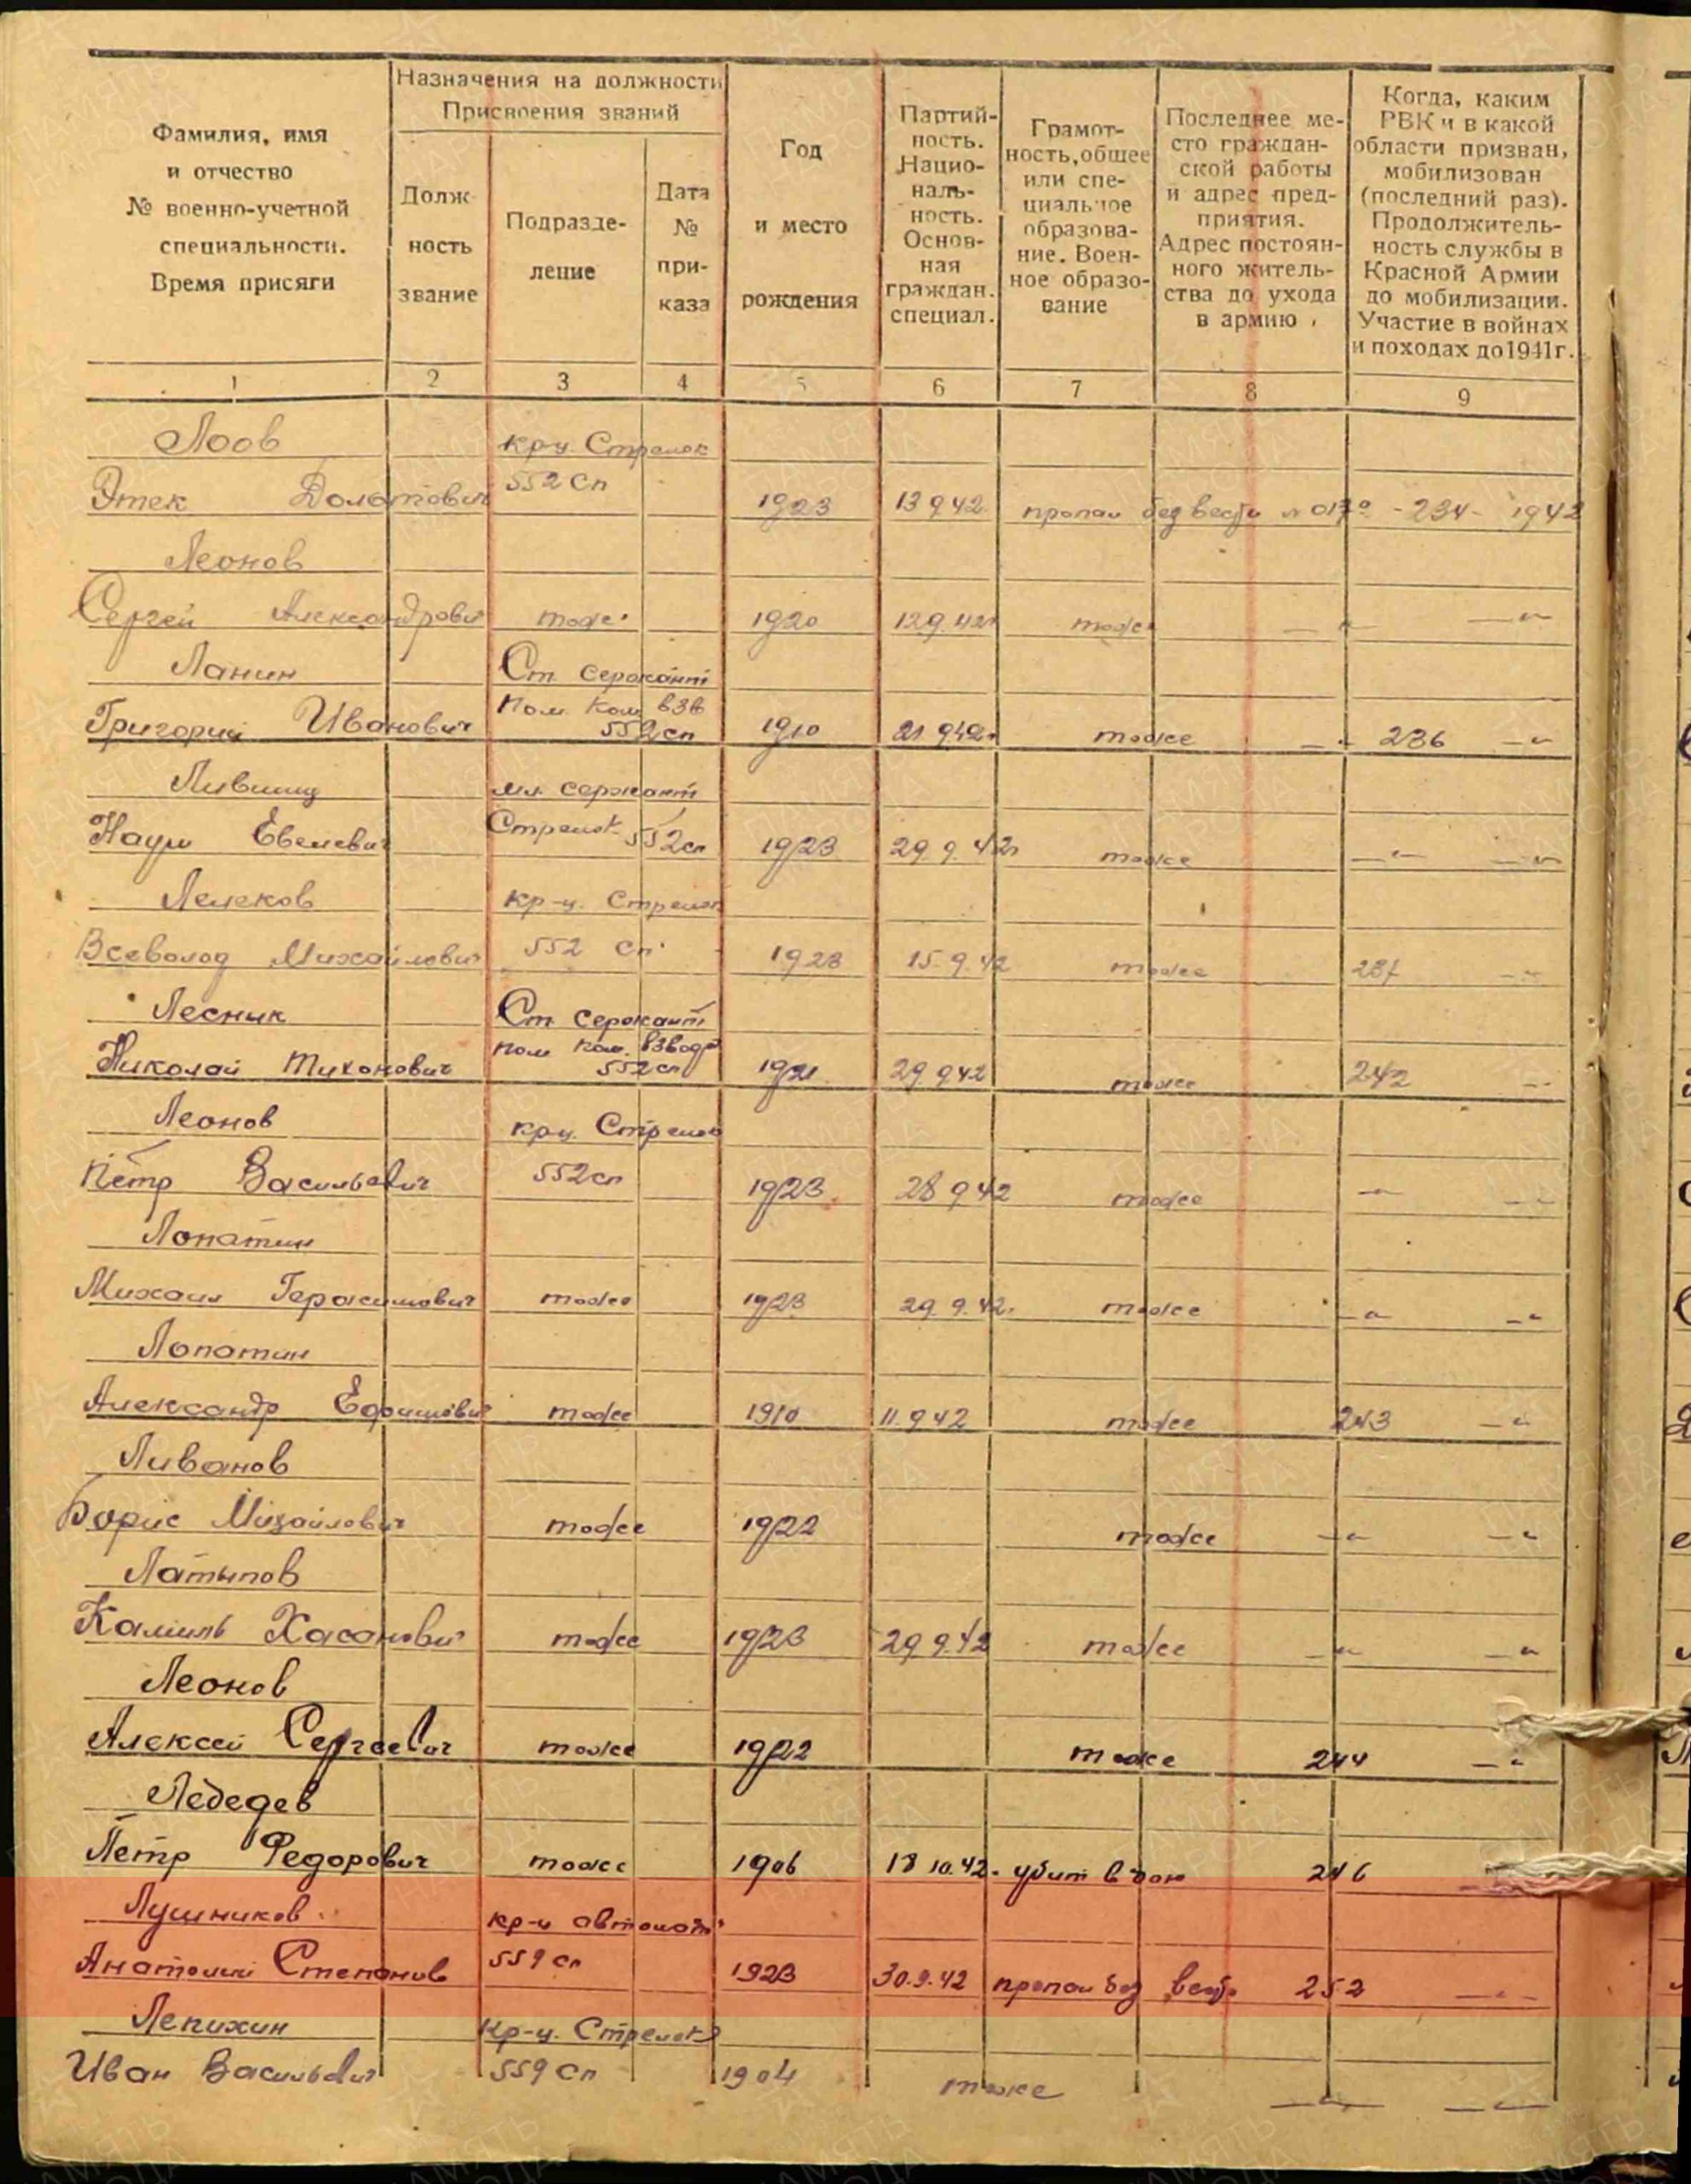 Фамилия, имя
и отчество
№ военно-учетной
специальности.
Время присяги
Назначения на должности
Присвоения званий
Долж
ность
звание
Подразде-
ление
Дата
№
при-
каза
Год
и место
рождения
Партий-
ность.
Нацио-
наль-
ность.
Основ-
ная
граждан.
специал.
Грамот-
ность, общее
или спе-
циальное
образова-
ние. Воен-
ное образо-
вание
Последнее ме-
сто граждан-
ской работы
и адрес пред-
приятия.
Адрес постоян-
ного житель-
ства до ухода
в армию
Когда, каким
РВК и в какой
области призван,
мобилизован
(последний раз).
Продолжитель-
ность службы в
Красной Армии
до мобилизации.
Участие в войнах
и походах до 1941 г.
1 2 3 4 5 6 7 8 9
Лоов кр-ц. Стрелок
552 сп
Этек Долотович 1923 13 9 42 пропал без вести - 234 - 1942
Леонов
Сергей Александрович тоже 1920 12.9.42 тоже — " — — " —
Ланин Ст. сержант
Пом. Ком. взв
Григорий Иванович 552 сп 1910 21 9 42 тоже — " — 236 — " —
Лившиц мл. сержант
Наум Евелевич Стрелок 552 сп 1923 29. 9. 42 тоже — " — — " —
Лелеков кр-ц. Стрелок
Всеволод Михайлович 552 сп 1923 15. 9. 42 тоже 237 — " —
Лесник Ст. сержант
Пом. Ком. взвода
Николай Тихонович 552 сп 1921 29 9 42 тоже 242 — " —
Леонов кр-ц. Стрелок
Петр Васильевич 552 сп 1923 28 9 42 тоже — " — — " —
Лопатин
Михаил Герасимович тоже 1923 29. 9. 42. тоже — " — — " —
Лопатин
Александр Ефимович тоже 1910 11. 9 42 тоже 243 — " —
Ливанов
Борис Михайлович тоже 1922 тоже — " — — " —
Латыпов
Камиль Хасанович тоже 1923 29 9. 42 тоже — " — — " —
Леонов
Алексей Сергеевич тоже 1922 тоже 244 — " —
Лебедев
Петр Федорович тоже 1906 18 10. 42. убит в бою 246
Лушников кр-ц автомат
Анатолий Степанов 559 сп 1923 30. 9. 42 пропал без вести 252 — " —
Лепихин кр-ц. Стрелок
Иван Васильевич 559 сп 1904 тоже — " — — " —